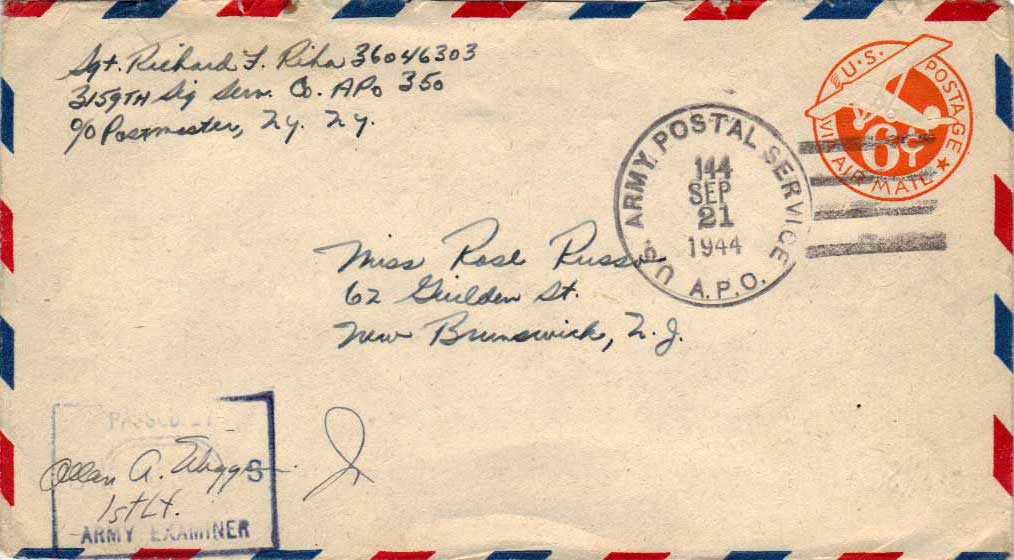 Sgt. Richard F. Riha 36046303
3159TH Sig Serv. Co. APO 350
c/o Postmaster, N.Y. N.Y.
U.S. POSTAGE
VIA AIR MAIL
6¢
U.S. ARMY POSTAL SERVICE
144
SEP
21
1944
A.P.O.
Miss Rose Russo
62 Guilden St.
New Brunswick, N.J.
PASSED BY
S
Allan A.
1st Lt.
ARMY EXAMINER